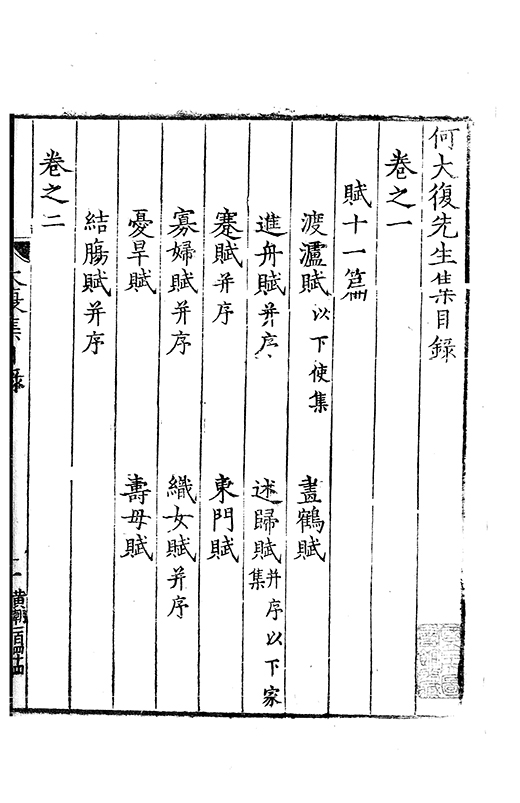 何大復先生集目錄
卷之一
賦十一篇
渡瀘賦以下使集 畫鶴賦
進舟賦并序 述歸賦并序以下家集
蹇賦并序 東門賦
寡婦賦并序 織女賦并序
憂旱賦 壽母賦
結腸賦并序
卷之二
大復集 目錄 一 黃 二百四十四